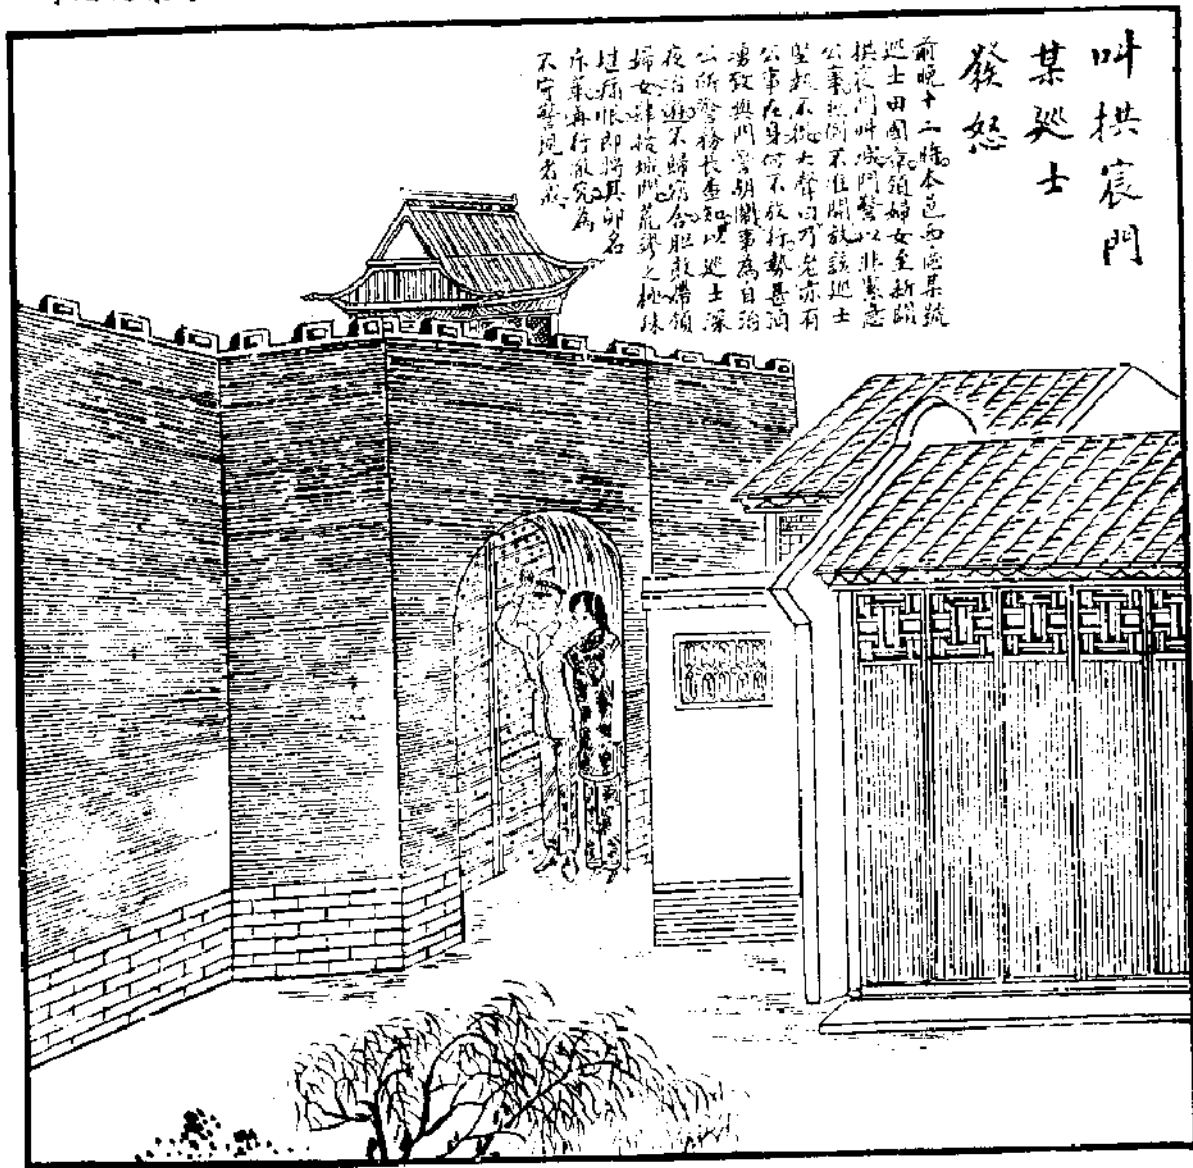 叫拱宸門
某廵士
發怒
前晚十二時本邑西區某號
廵士田國京領婦女至新闢
拱宸門叫城門警以非緊急
公事照例不准開放該廵士
堅執不從大聲曰乃老亦有
公事在身何不放行勢甚洶
湧致與門警胡鬧事為自治
公所警務長查知以廵士深
夜冶遊不歸宿合胆敢帶領
婦女肆擾城門荒謬之極殊
堪痛恨即將其卯名
斥革再行徹究為
不守警規者戒